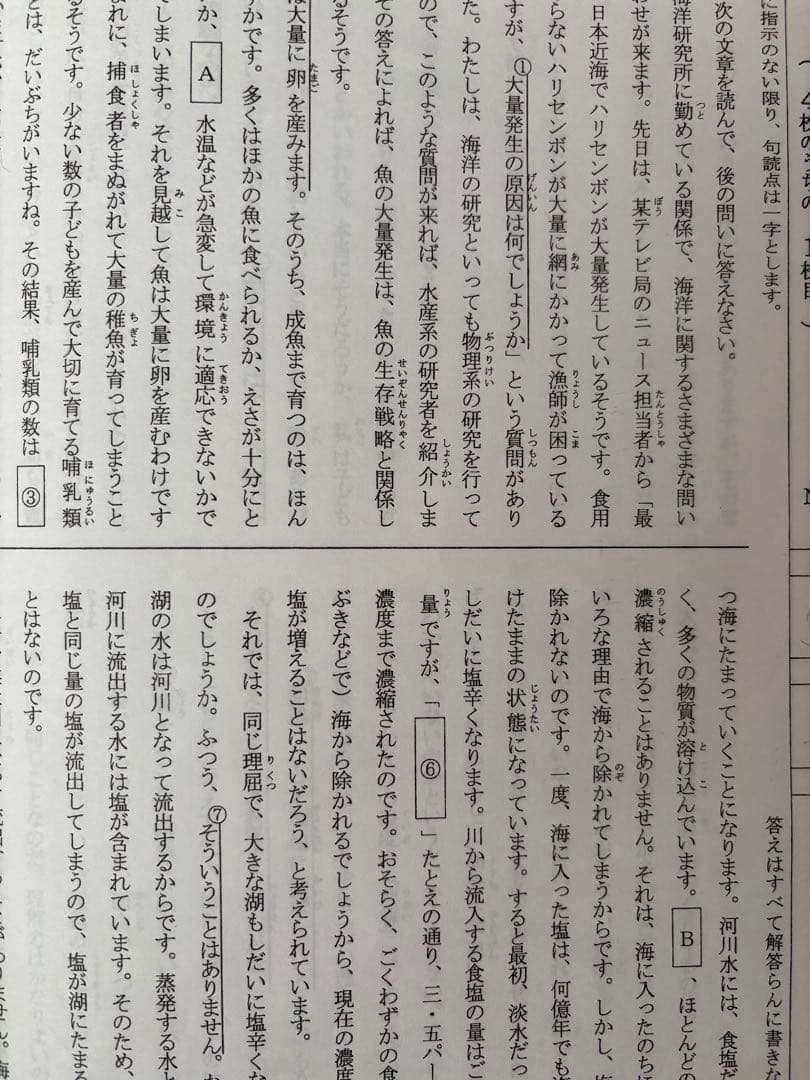 に指示のない限り、句読点は一字とします。
次の文章を読んで、後の問いに答えなさい。
海洋研究所に勤めている関係で、海洋に関するさまざまな問い
わせが来ます。先日は、某テレビ局のニュース担当者から「最
日本近海でハリセンボンが大量発生しているそうです。食用
らないハリセンボンが大量に網にかかって漁師が困っている
すが、①大量発生の原因は何でしょうか」という質問があり
た。わたしは、海洋の研究といっても物理系の研究を行って
ので、このような質問が来れば、水産系の研究者を紹介しま
その答えによれば、魚の大量発生は、魚の生存戦略と関係し
るそうです。
は大量に卵を産みます。そのうち、成魚まで育つのは、ほん
ずかです。多くはほかの魚に食べられるか、えさが十分にと
か、 A 水温などが急変して環境に適応できないかで
てしまいます。それを見越して魚は大量に卵を産むわけです
まれに、捕食者をまぬがれて大量の稚魚が育ってしまうこと
るそうです。少ない数の子どもを産んで大切に育てる哺乳類
とは、だいぶちがいますね。その結果、哺乳類の数は ③
答えはすべて解答らんに書きな
つ海にたまっていくことになります。河川水には、食塩だ
く、多くの物質が溶け込んでいます。 B 、ほとんどの
濃縮されることはありません。それは、海に入ったのち
いろな理由で海から除かれてしまうからです。しかし、
除かれないのです。一度、海に入った塩は、何億年でも
けたままの状態になっています。すると最初、淡水だっ
しだいに塩辛くなります。川から流入する食塩の量はご
量ですが、「 ⑥ 」たとえの通り、三・五パー
濃度まで濃縮されたのです。おそらく、ごくわずかの食
ぶきなどで）海から除かれるでしょうから、現在の濃度
塩が増えることはないだろう、と考えられています。
それでは、同じ理屈で、大きな湖もしだいに塩辛くな
のでしょうか。ふつう、⑦そういうことはありません。
湖の水は河川となって流出するからです。蒸発する水と
河川に流出する水には塩が含まれています。そのため、
塩と同じ量の塩が流出してしまうので、塩が湖にたまる
とはないのです。